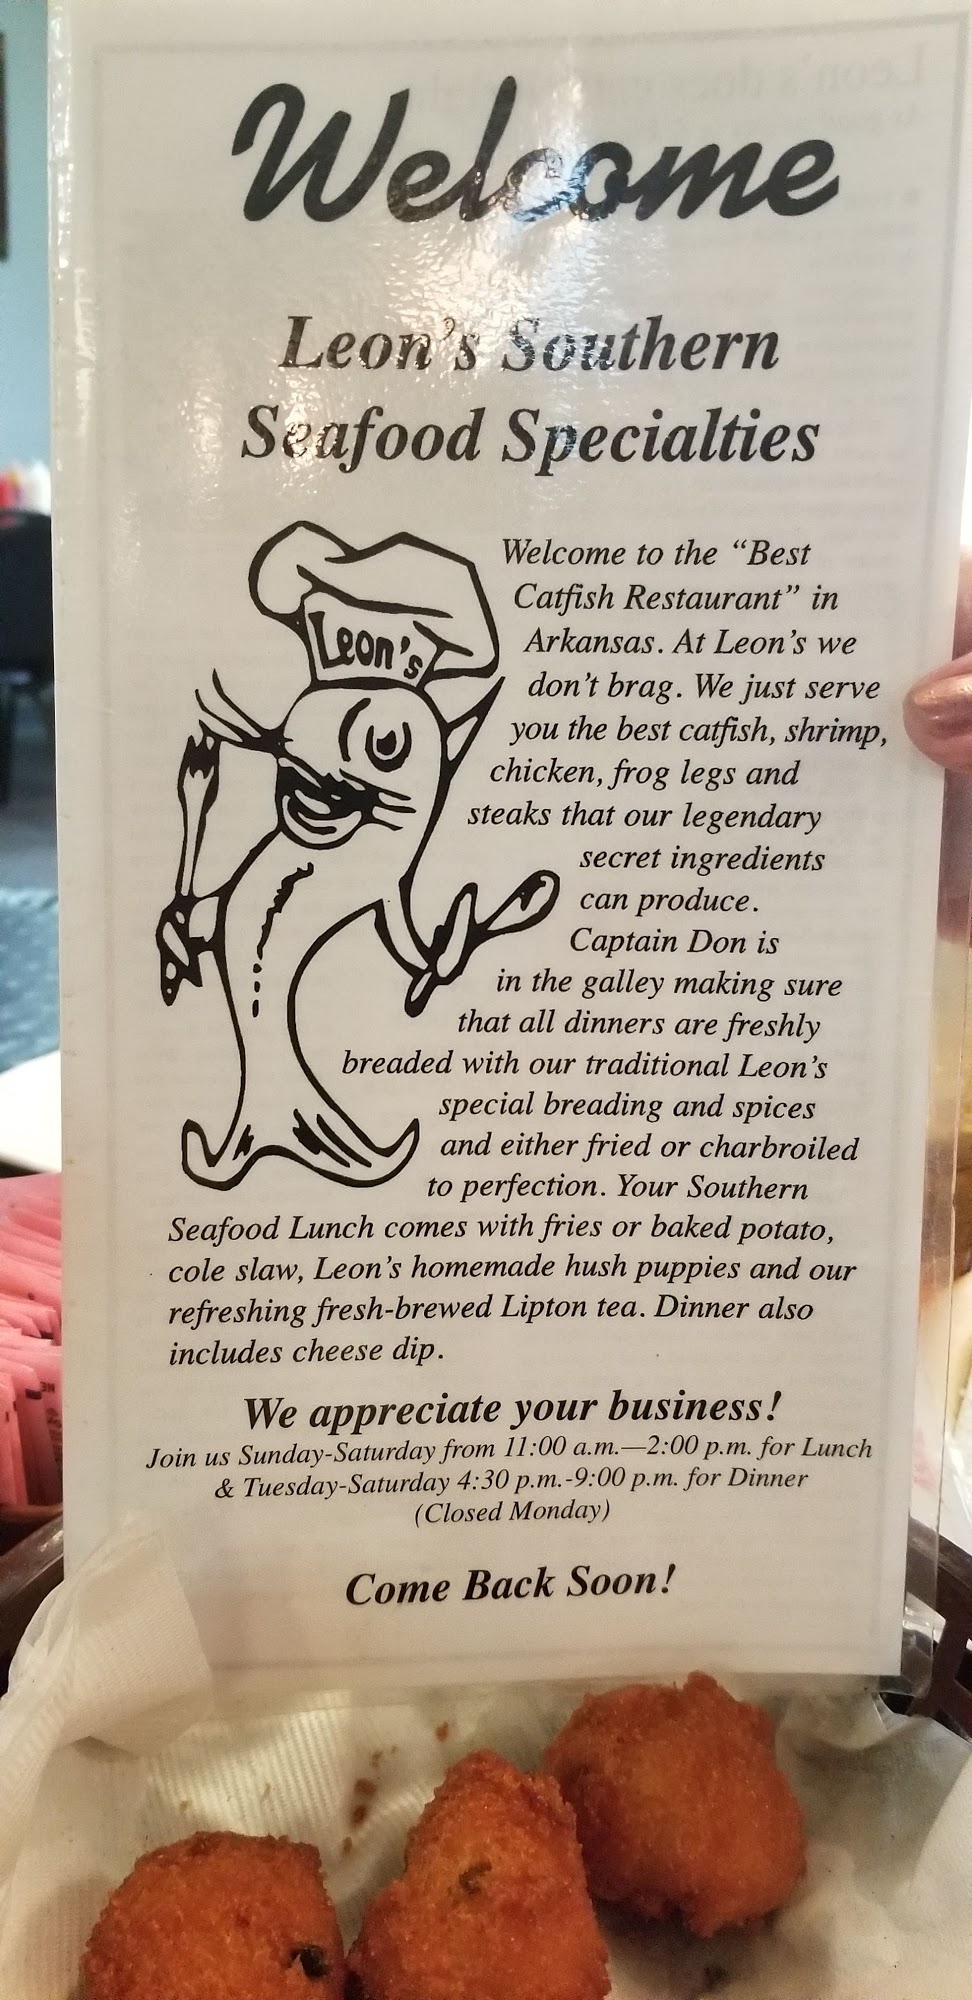 Welcome
Leon's Southern
Seafood Specialties
Leon's
Welcome to the “Best
Catfish Restaurant” in
Arkansas. At Leon's we
don't brag. We just serve
you the best catfish, shrimp,
chicken, frog legs and
steaks that our legendary
secret ingredients
can produce.
Captain Don is
in the galley making sure
that all dinners are freshly
breaded with our traditional Leon's
special breading and spices
and either fried or charbroiled
to perfection. Your Southern
Seafood Lunch comes with fries or baked potato,
cole slaw, Leon's homemade hush puppies and our
refreshing fresh-brewed Lipton tea. Dinner also
includes cheese dip.
We appreciate your business!
Join us Sunday-Saturday from 11:00 a.m.—2:00 p.m. for Lunch
& Tuesday-Saturday 4:30 p.m.-9:00 p.m. for Dinner
(Closed Monday)
Come Back Soon!